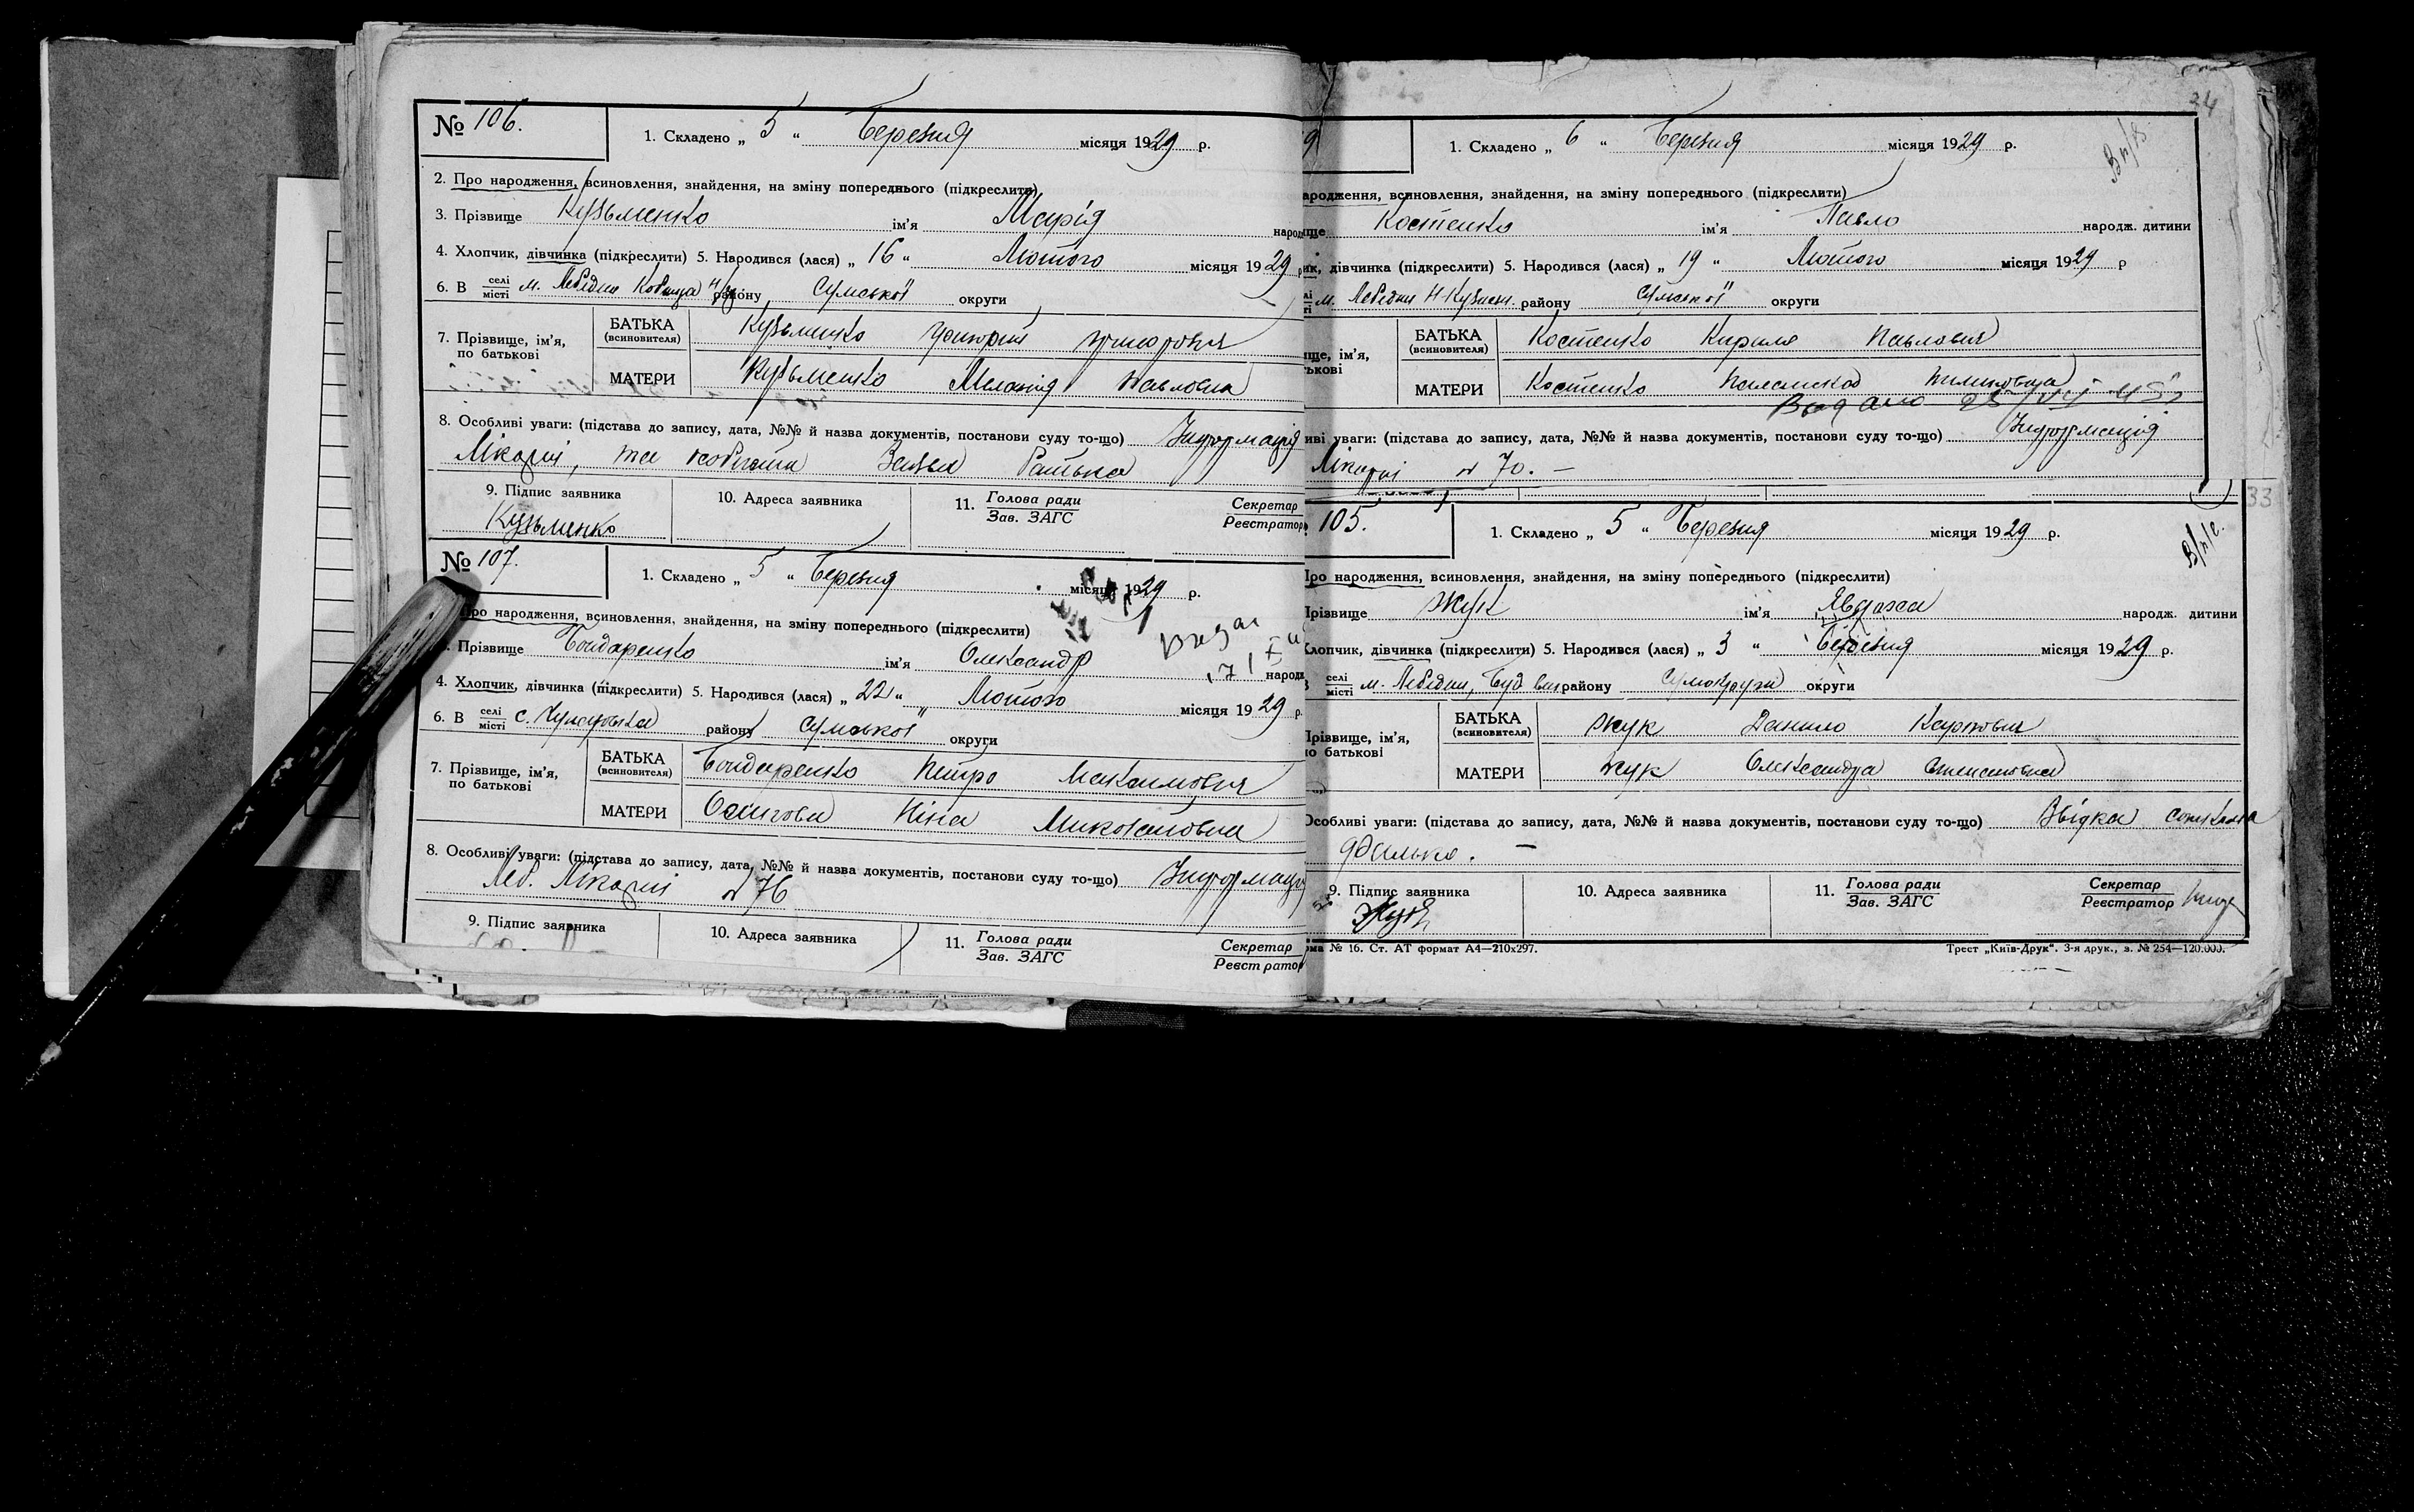 № 106.
1. Складено „ 5 “ Березня місяця 1929 р.
2. Про народження, всиновлення, знайдення, на зміну попереднього (підкреслити)
3. Прізвище Кузьменко ім’я Марія народ
4. Хлопчик, дівчинка (підкреслити) 5. Народився (лася) „ 16 “ Лютого місяця 1929 р
6. В селі/місті м. Лебедин району Сумської округи
7. Прізвище, ім’я, по батькові
БАТЬКА (всиновителя) Кузьменко Григорій Григорович
МАТЕРИ Кузьменко Меланія Павловна
8. Особливі уваги: (підстава до запису, дата, №№ й назва документів, постанови суду то-що) Інформація
Лікарні, та батька
9. Підпис заявника 10. Адреса заявника 11. Голова ради/Зав. ЗАГС Секретар/Реєстратор
Кузьменко
№ 107.
1. Складено „ 5 “ Березня місяця 1929 р.
Про народження, всиновлення, знайдення, на зміну попереднього (підкреслити)
Прізвище Бондаренко ім’я Олександр народ
4. Хлопчик, дівчинка (підкреслити) 5. Народився (лася) „ 22 “ Лютого місяця 1929 р
6. В селі/місті с. району Сумської округи
7. Прізвище, ім’я, по батькові
БАТЬКА (всиновителя) Бондаренко Петро Максимович
МАТЕРИ Ніна Миколаївна
8. Особливі уваги: (підстава до запису, дата, №№ й назва документів, постанови суду то-що)
Леб. Лікарні № 76
9. Підпис заявника 10. Адреса заявника 11. Голова ради/Зав. ЗАГС Секретар/Реєстратор
24
1. Складено „ 6 “ Березня місяця 1929 р.
ародження, всиновлення, знайдення, на зміну попереднього (підкреслити)
ище Костенко ім’я Павло народж. дитини
ик, дівчинка (підкреслити) 5. Народився (лася) „ 19 “ Лютого місяця 1929 р
м. Лебедин району Сумської округи
ище, ім’я, ькові
БАТЬКА (всиновителя) Костенко Кирило Павлович
МАТЕРИ Костенко
Видано
иві уваги: (підстава до запису, дата, №№ й назва документів, постанови суду то-що) Інформація
Лікарні № 70. —
33
105.
1. Складено „ 5 “ Березня місяця 1929 р.
Про народження, всиновлення, знайдення, на зміну попереднього (підкреслити)
Прізвище Жук ім’я Явдоха народж. дитини
Хлопчик, дівчинка (підкреслити) 5. Народився (лася) „ 3 “ Березня місяця 1929 р.
селі/місті м. Лебедин, району округи
Прізвище, ім’я, по батькові
БАТЬКА (всиновителя) Жук Данило Карпович
МАТЕРИ Жук Олександра Степановна
Особливі уваги: (підстава до запису, дата, №№ й назва документів, постанови суду то-що)
9. Підпис заявника 10. Адреса заявника 11. Голова ради/Зав. ЗАГС Секретар/Реєстратор
Жук
рма № 16. Ст. АТ формат А4—210х297. Трест „Київ-Друк“. 3-я друк., з. № 254—120.000.